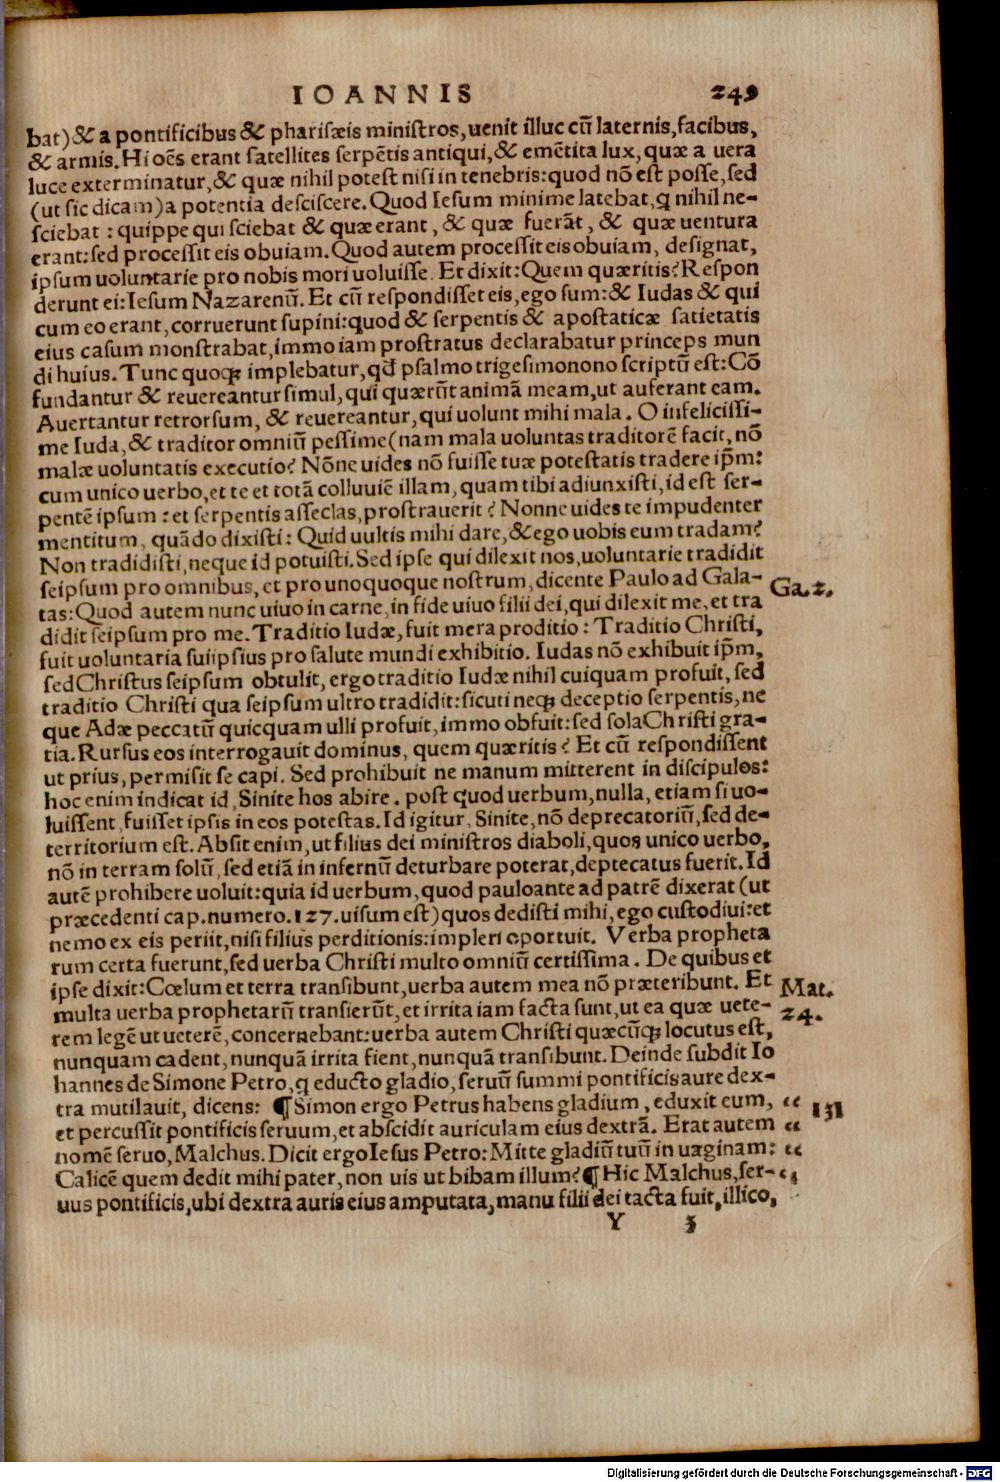 IOANNIS 249
bat) & a pontificibus & pharisæis ministros, uenit illuc cū laternis, facibus,
& armis. Hi oēs erant satellites serpētis antiqui, & emētita lux, quæ a uera
luce exterminatur, & quæ nihil potest nisi in tenebris: quod nō est posse, sed
(ut sic dicam) a potentia desciscere. Quod Iesum minime latebat, q nihil ne-
sciebat : quippe qui sciebat & quæ erant, & quæ fuerāt, & quæ uentura
erant: sed processit eis obuiam. Quod autem processit eis obuiam, designat,
ipsum uoluntarie pro nobis mori uoluisse. Et dixit: Quem quæritis? Respon
derunt ei: Iesum Nazarenū. Et cū respondisset eis, ego sum: & Iudas & qui
cum eo erant, corruerunt supini: quod & serpentis & apostaticæ satietatis
eius casum monstrabat, immo iam prostratus declarabatur princeps mun
di huius. Tunc quoqꝫ implebatur, qđ psalmo trigesimonono scriptū est: Cō
fundantur & reuereantur simul, qui quærūt animā meam, ut auferant eam.
Auertantur retrorsum, & reuereantur, qui uolunt mihi mala. O infelicissi-
me Iuda, & traditor omniū pessime (nam mala uoluntas traditorē facit, nō
malæ uoluntatis executio? Nōne uides nō fuisse tuæ potestatis tradere ip̄m:
cum unico uerbo, et te et totā colluuiē illam, quam tibi adiunxisti, id est ser-
pentē ipsum : et serpentis asseclas, prostrauerit? Nonne uides te impudenter
mentitum, quādo dixisti: Quid uultis mihi dare, & ego uobis eum tradam?
Non tradidisti, neque id potuisti. Sed ipse qui dilexit nos, uoluntarie tradidit
seipsum pro omnibus, et pro unoquoque nostrum, dicente Paulo ad Gala- Ga.2.
tas: Quod autem nunc uiuo in carne, in fide uiuo filii dei, qui dilexit me, et tra
didit seipsum pro me. Traditio Iudæ, fuit mera proditio : Traditio Christi,
fuit uoluntaria suiipsius pro salute mundi exhibitio. Iudas nō exhibuit ip̄m,
sed Christus seipsum obtulit, ergo traditio Iudæ nihil cuiquam profuit, sed
traditio Christi qua seipsum ultro tradidit: sicuti neqꝫ deceptio serpentis, ne
que Adæ peccatū quicquam ulli profuit, immo obfuit: sed sola Christi gra-
tia. Rursus eos interrogauit dominus, quem quæritis? Et cū respondissent
ut prius, permisit se capi. Sed prohibuit ne manum mitterent in discipulos:
hoc enim indicat id, Sinite hos abire. post quod uerbum, nulla, etiam si uo-
luissent, fuisset ipsis in eos potestas. Id igitur, Sinite, nō deprecatoriū, sed de-
territorium est. Absit enim, ut filius dei ministros diaboli, quos unico uerbo,
nō in terram solū, sed etiā in infernū deturbare poterat, deptecatus fuerit. Id
autē prohibere uoluit: quia id uerbum, quod pauloante ad patrē dixerat (ut
præcedenti cap. numero. 127. uisum est) quos dedisti mihi, ego custodiui: et
nemo ex eis periit, nisi filius perditionis: impleri oportuit. Verba propheta
rum certa fuerunt, sed uerba Christi multo omniū certissima. De quibus et
ipse dixit: Cœlum et terra transibunt, uerba autem mea nō præteribunt. Et Mat.
multa uerba prophetarū transierūt, et irrita iam facta sunt, ut ea quæ uete- 24.
rem legē ut ueterē, concernebant: uerba autem Christi quæcūqꝫ locutus est,
nunquam cadent, nunquā irrita fient, nunquā transibunt. Deinde subdit Io
hannes de Simone Petro, q educto gladio, seruū summi pontificis aure dex-
tra mutilauit, dicens: ¶ Simon ergo Petrus habens gladium, eduxit eum, “ 131
et percussit pontificis seruum, et abscidit auriculam eius dextrā. Erat autem “
nomē seruo, Malchus. Dicit ergo Iesus Petro: Mitte gladiū tuū in uaginam: “
Calicē quem dedit mihi pater, non uis ut bibam illum? ¶ Hic Malchus, ser- “
uus pontificis, ubi dextra auris eius amputata, manu filii dei tacta fuit, illico,
Y 3
Digitalisierung gefördert durch die Deutsche Forschungsgemeinschaft - DFG